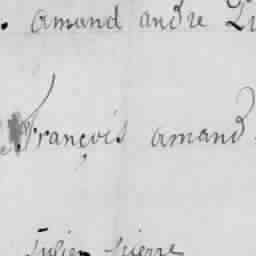 amand andre
François amand
Julien pierre